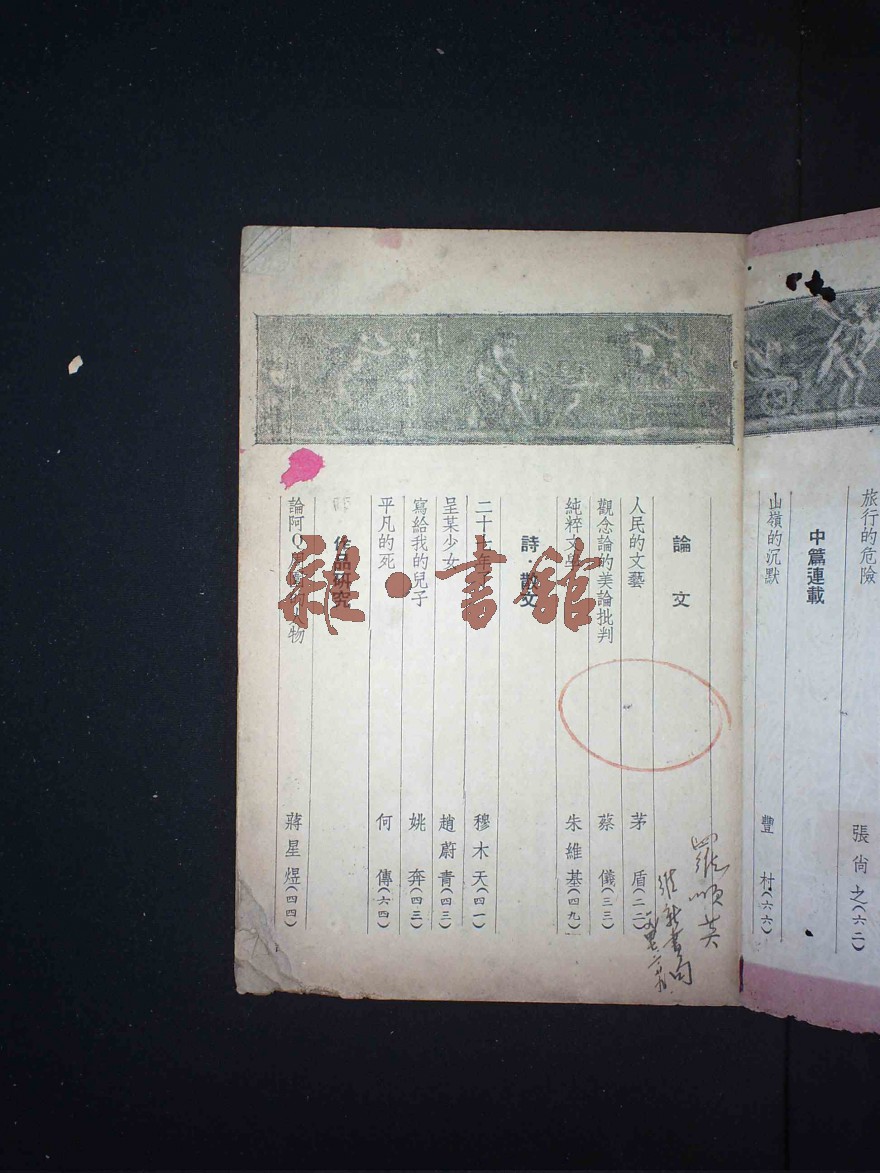 旅行的危險 張尙之(六二)
中篇連載
山嶺的沉默 豐村(六六)
論文
人民的文藝 茅盾(二二)
觀念論的美論批判 蔡儀(三三)
純粹文學 朱維基(四九)
詩·散文
二十七年了 穆木天(四一)
呈某少女 趙蔚青(四三)
寫給我的兒子 姚奔(四三)
平凡的死 何傳(六四)
作品研究
論阿Q 人物 蔣星煜(四四)
羅順英
維新書局
雜·書館